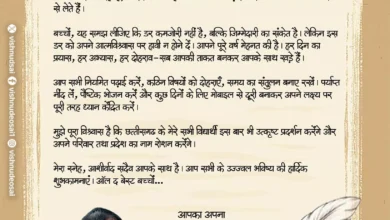 से लेते हैं।
बच्चों, यह समझ लीजिए कि डर कमजोरी नहीं है, बल्कि जिम्मेदारी का संकेत है। लेकिन इस
डर को अपने आत्मविश्वास पर हावी न होने दें। आपने पूरे वर्ष मेहनत की है। हर दिन का
प्रयास, हर अभ्यास, हर दोहराव–सब आपकी ताकत बनकर आपके साथ खड़े हैं।
आप सभी नियमित पढ़ाई करें, कठिन विषयों को दोहराएँ, समय का संतुलन बनाए रखें। पर्याप्त
नींद लें, पौष्टिक भोजन करें और कुछ दिनों के लिए मोबाइल से दूरी बनाकर अपने लक्ष्य पर
पूरी तरह ध्यान केंद्रित करें।
मुझे पूरा विश्वास है कि छत्तीसगढ़ के मेरे सभी विद्यार्थी इस बार भी उत्कृष्ट प्रदर्शन करेंगे और
अपने परिवार तथा प्रदेश का नाम रोशन करेंगे।
मेरा स्नेह, आशीर्वाद सदैव आपके साथ है। आप सभी के उज्ज्वल भविष्य की हार्दिक
शुभकामनाएं। ऑल द बेस्ट बच्चों...
आपका अपना